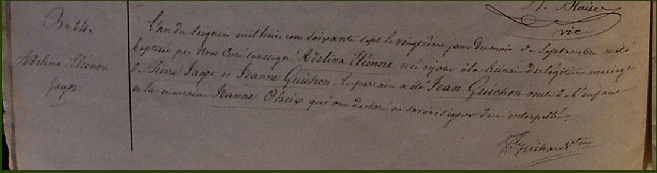 B. 24.
Adelina Eléonore
Jagot
St. Blaise
vic
L'an du Seigneur mil huit cent soixante sept le vingtième jour du mois de Septembre a été
baptisée par Nous Curé soussigné Adelina Eléonore née ce jour du légitime mariage
de Pierre Jagot et Jeanne Guichon. Le parrain a été Jean Guichon oncle de l'enfant
et la marraine Jeanne Cheix qui ont déclaré ne savoir signer de ce interpellé.